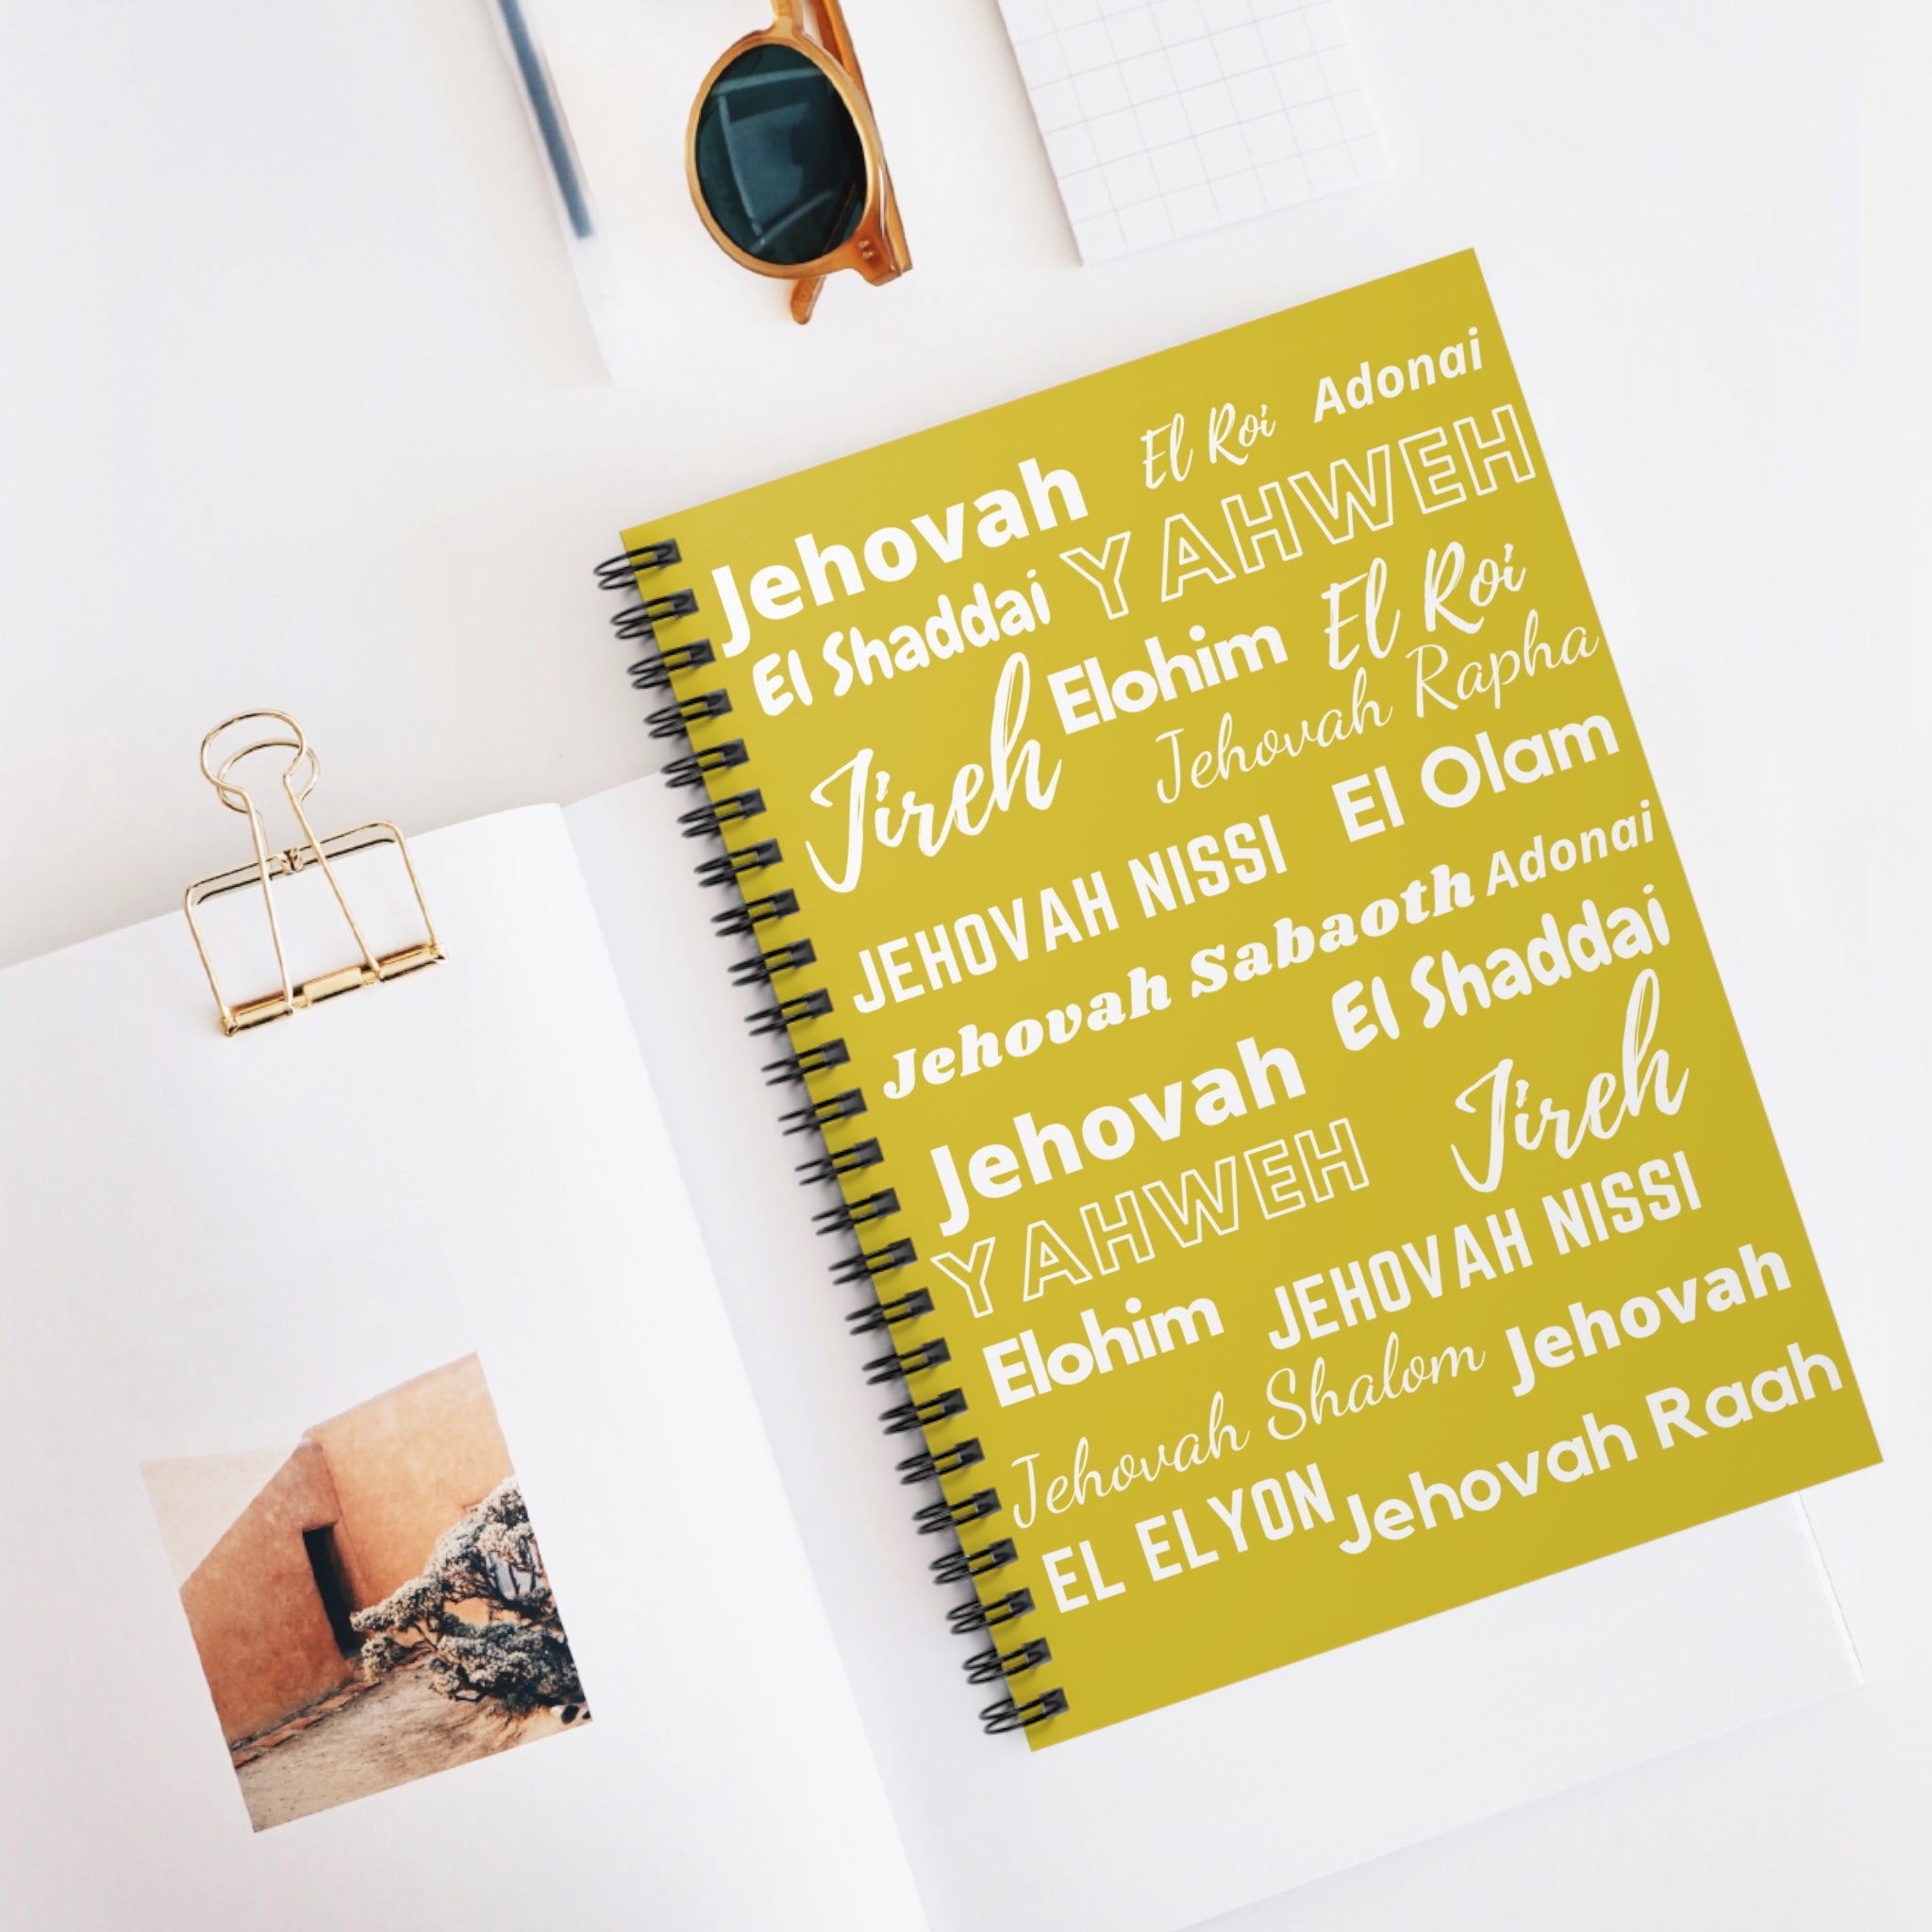 El Roi Adonai
Jehovah
YAHWEH
El Shaddai
Elohim El Roi
Jireh
Jehovah Rapha
El Olam
JEHOVAH NISSI
Jehovah Sabaoth Adonai
El Shaddai
Jehovah
Jireh
YAHWEH
JEHOVAH NISSI
Elohim
Jehovah Shalom Jehovah
EL ELYON Jehovah Raah